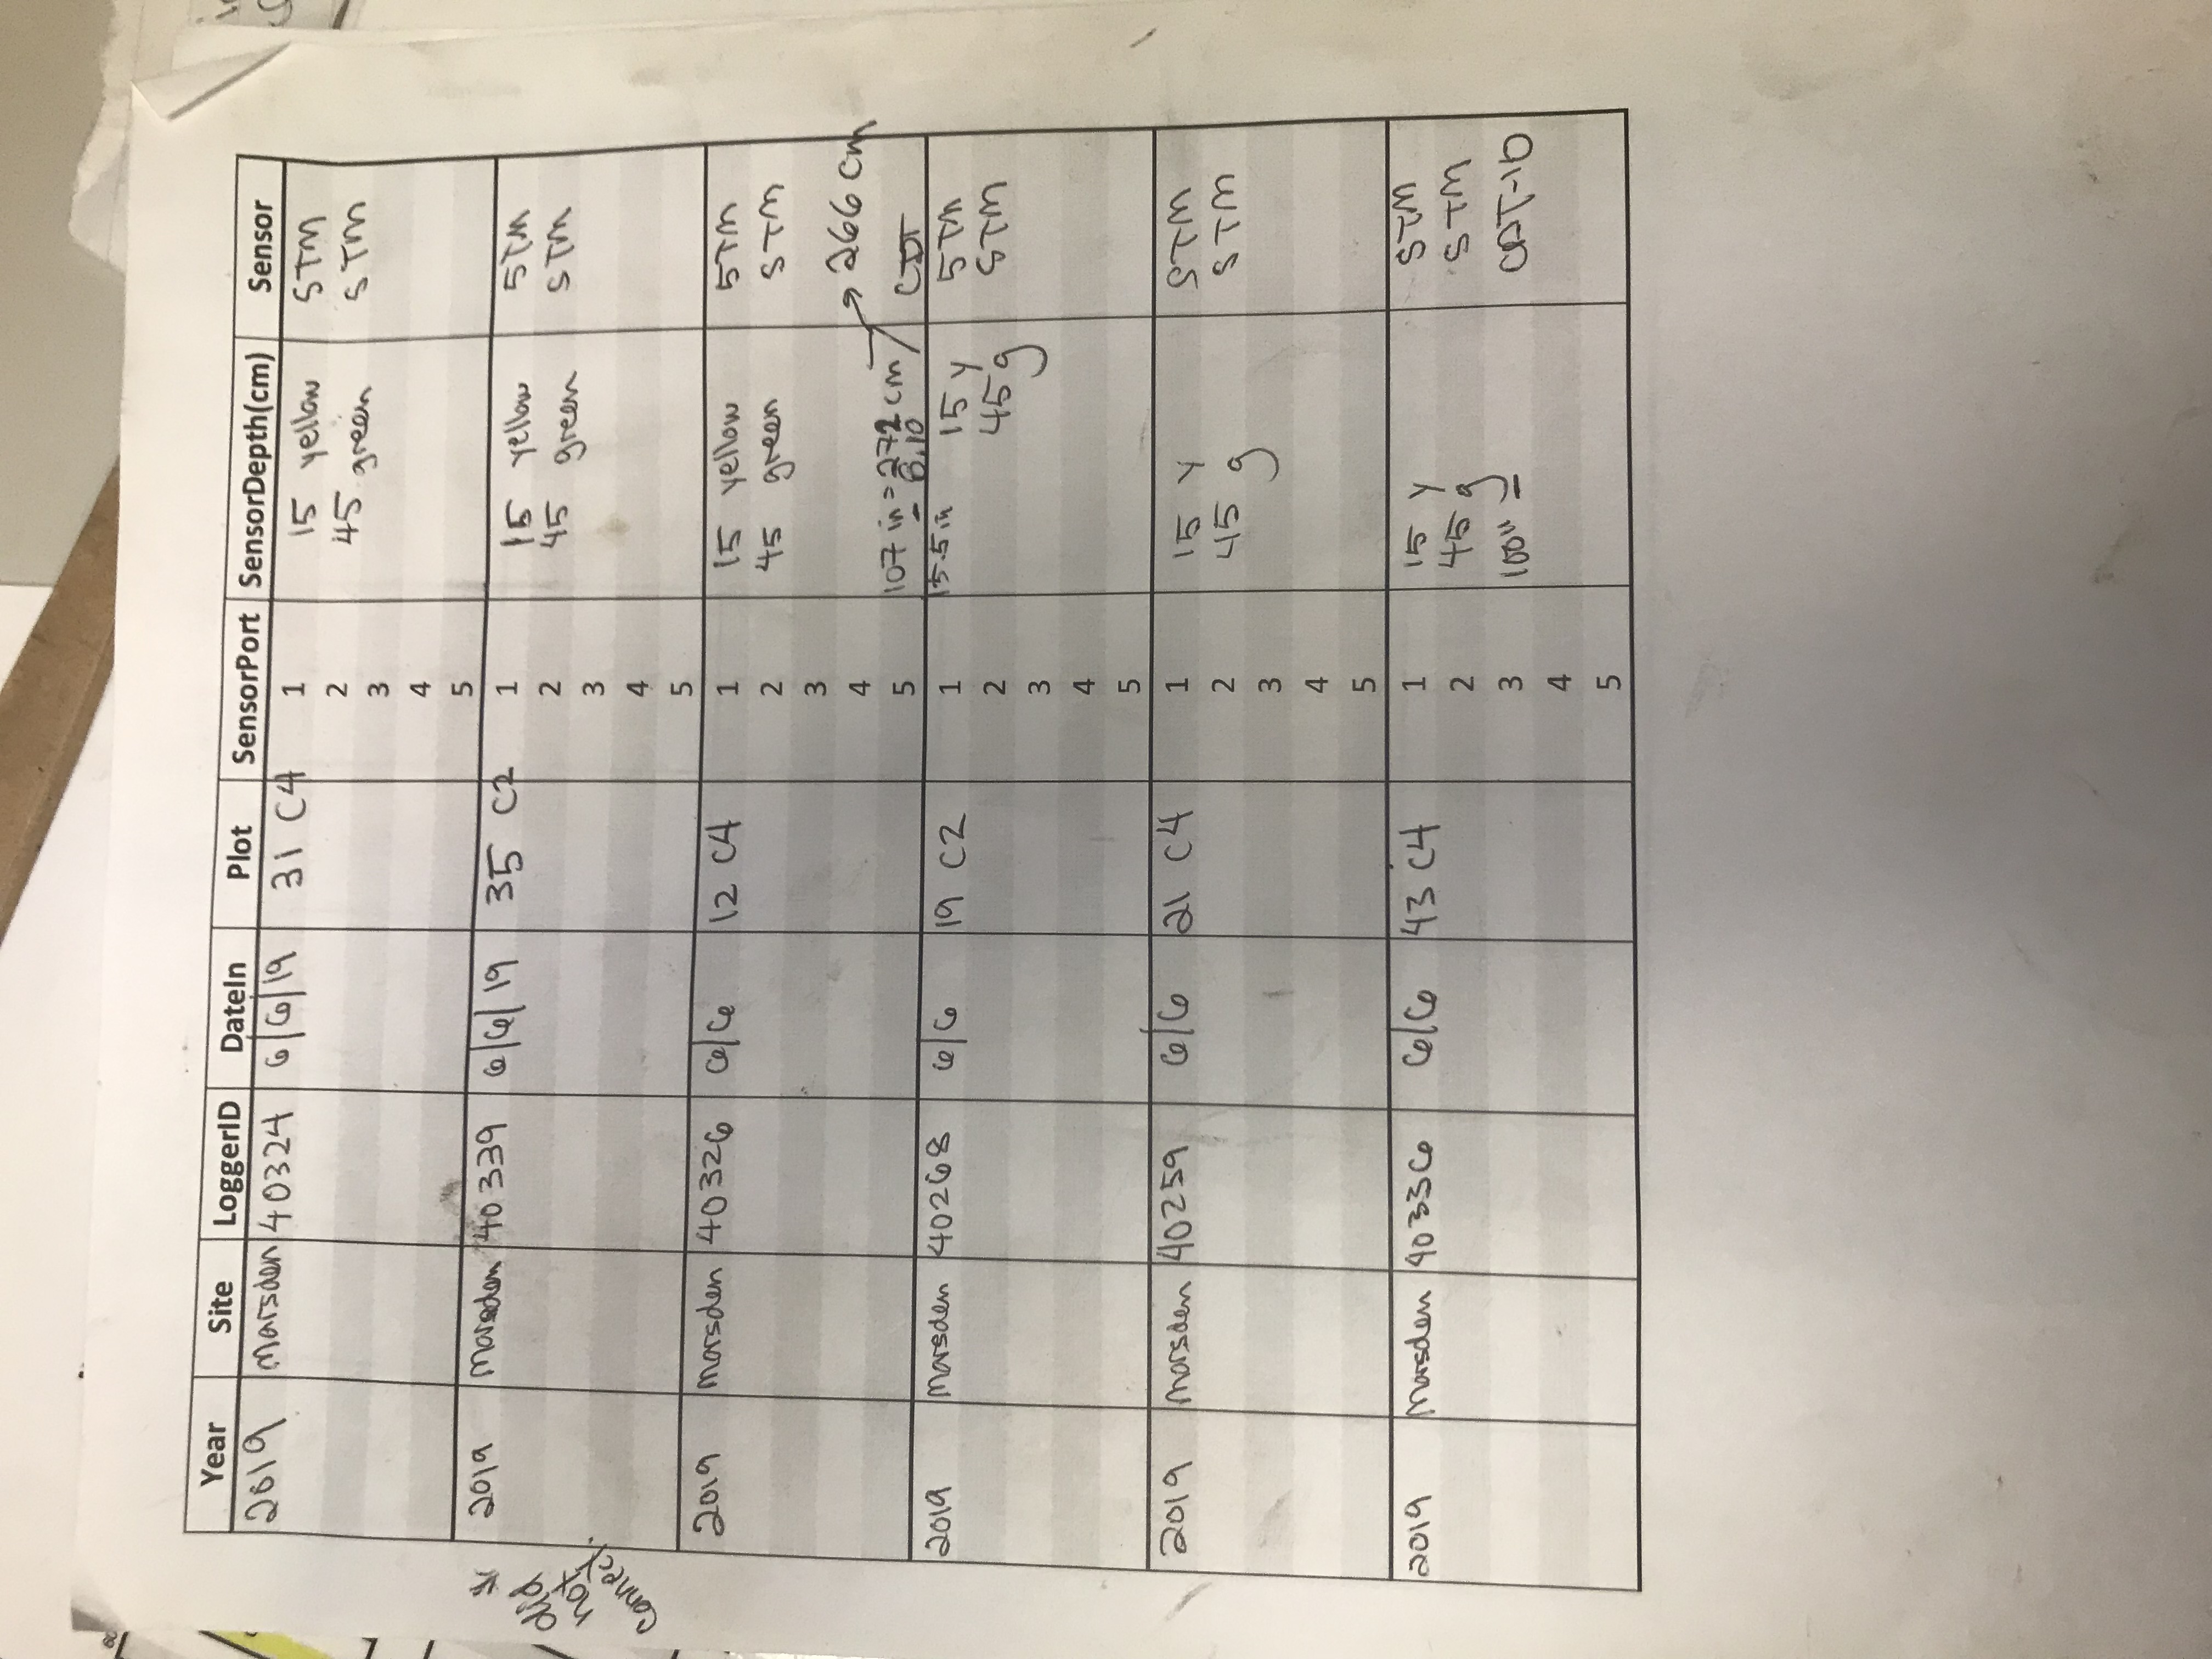 Year Site LoggerID DateIn Plot SensorPort SensorDepth(cm) Sensor
2019 Marsden 40324 6/6/19 31 C4 1 15 yellow 5TM
2 45 green 5TM
3
4
5
2019 Marsden 40339 6/6/19 35 C2 1 15 yellow 5TM
2 45 green 5TM
3
4
5
* did
not
connect.
2019 Marsden 40326 6/6 12 C4 1 15 yellow 5TM
2 45 green 5TM
3
4 → 266 cm
5 107 in = 272 cm CDT
- 6.10
2019 Marsden 40268 6/6 19 C2 1 15.5 in 15 y 5TM
2 45 g 5TM
3
4
5
2019 Marsden 40259 6/6 21 C4 1 15 y 5TM
2 45 g 5TM
3
4
5
2019 Marsden 40336 6/6 43 C4 1 15 y 5TM
2 45 g 5TM
3 100" = CDT-10
4
5